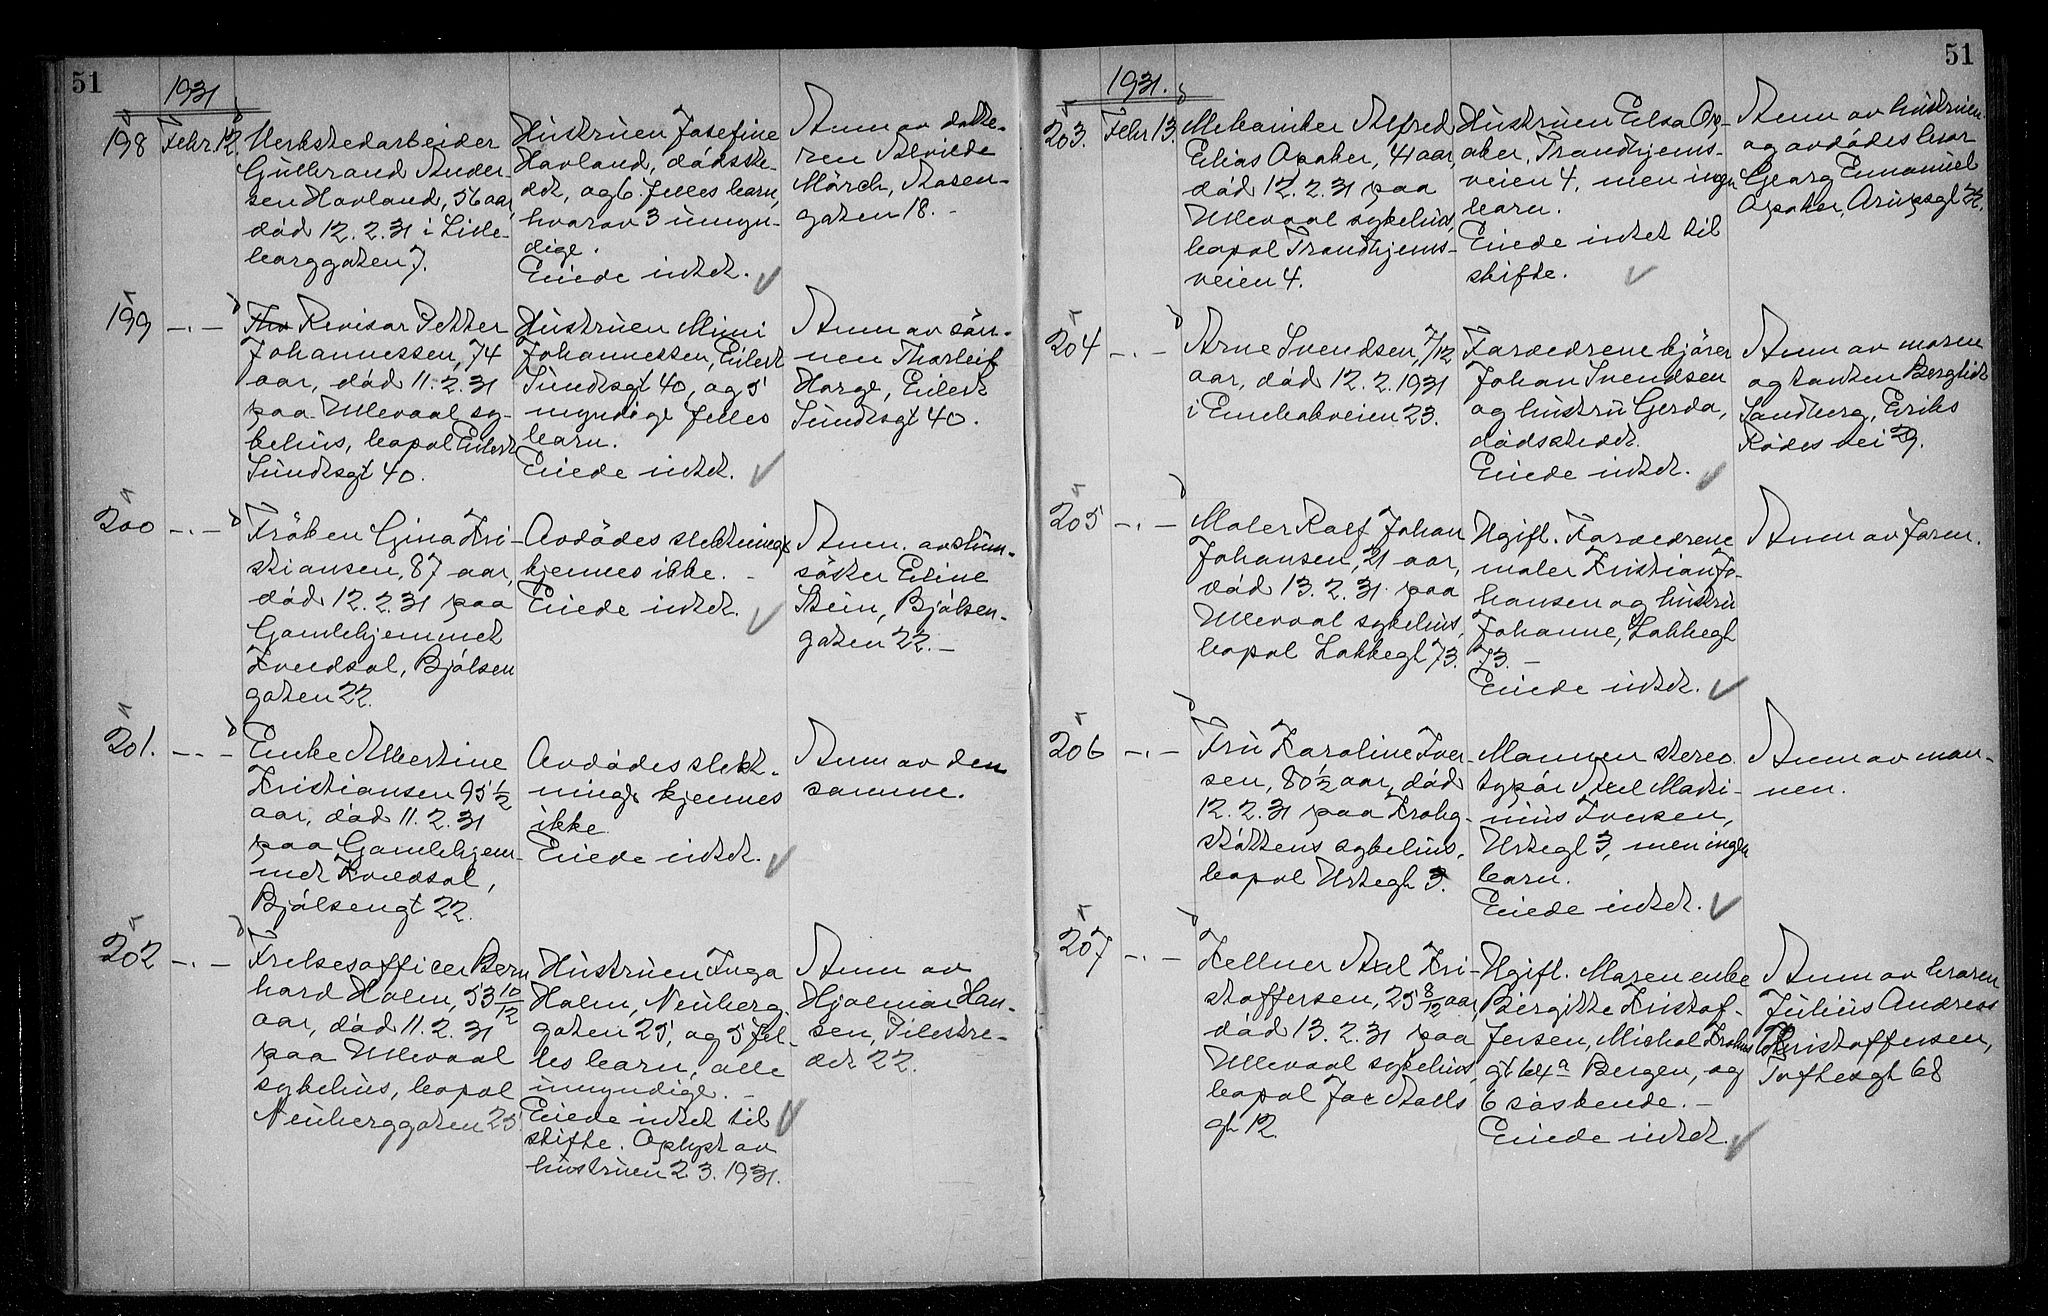 51
1931
198 Febr. 12.
Verkstedarbeider
Gulbrand Ander-
sen Havland, 56 aar,
död 12.2.31 i Lille-
borggaten 7.
Hustruen Josefine
Havland, dödsste-
det, og 6 felles barn,
hvorav 3 umyn-
dige.
Eiede intet.
Anm av datte-
ren Alvilde
Mörch, Rosen-
gaten 18. -
199 -.-
Revisor Petter
Johannessen, 74
aar, död 11.2.31
paa Ullevaal sy-
kehus, bopæl Eilert
Sundtsgt 40.
Hustruen Mimi
Johannessen, Eilert
Sundtsgt 40, og 5
myndige felles
barn.
Eiede intet.
Anm av sön-
nen Thorleif
Horge, Eilert
Sundtsgt 40.
200 -.-
Fröken Gina Kri-
stiansen, 87 aar,
död 12.2.31 paa
Gamlehjemmet
Kveldsol, Bjölsen
gaten 22.
Avdödes slektninger
kjennes ikke. -
Eiede intet.
Anm. av slum-
söster Eline
Stein, Bjölsen-
gaten 22. -
201. -.-
Enke Albertine
Kristiansen 95 1/2
aar, död 11.2.31
paa Gamlehjem-
met Kveldsol,
Bjölsengt 22.
Avdödes slekt-
ninge kjennes
ikke.
Eiede intet.
Anm av den
samme.
202 -.-
Frelsesofficer Bern
hard Holm, 53 10/12
aar, död 11.2.31
paa Ullevaal
sykehus, bopæl
Neuberggaten 25.
Hustruen Inga
Holm, Neuberg
gaten 25, og 5 fel-
les barn, alle
umyndige. -
Eiede intet til
skifte. Oplyst av
hustruen 2.3.1931.
Anm av
Hjalmar Han-
sen, Pilestre-
det 22.
51
1931.
203. Febr 13.
Mekaniker Alfred
Elias Opaker, 41 aar,
död 12.2.31 paa
Ullevaal sykehus,
bopæl Trondhjems-
veien 4.
Hustruen Elsa Op-
aker, Trondhjems-
veien 4, men ingen
barn.
Eiede intet til
skifte.
Anm av hustruen
og avdödes bror
Georg Emanuel
Opaker,
204 -.-
Arne Svendsen, 7/12
aar, död 12.2.1931
i Enebakveien 23.
Forældrene kjörer
Johan Svendsen
og hustru Gerda,
dödsstedet.
Eiede intet.
Anm av moren
og tanten Bergliot
Sandberg, Eriks
Rödes vei 29.
205 -.-
Maler Rolf Johan
Johansen, 21 aar,
död 13.2.31 paa
Ullevaal sykehus,
bopæl Lakkegt 73.
Ugift. Forældrene
maler Kristian Jo-
hansen og hustru
Johanne, Lakkegt
73. -
Eiede intet.
Anm av faren.
206 -.-
Fru Karoline Iver
sen, 80 1/2 aar, död
12.2.31 paa Krohg-
stöttens sykehus,
bopæl Urtegt 3.
Mannen stereo
typör Axel Marti-
nius Iversen,
Urtegt 3, men ingen
barn.
Eiede intet.
Anm av man-
nen.
207 -.-
Kellner Axel Kri-
stoffersen, 25 8/12 aar,
död 13.2.31 paa
Ullevaal sykehus,
bopæl Jac Aalls
gt 12
Ugift. Moren enke
Birgitte Kristof-
fersen, Michal Krohns
gt 64a Bergen, og
6 söskende. -
Eiede intet.
Anm av broren
Julius Andreas
Kristoffersen,
Toftesgt 68